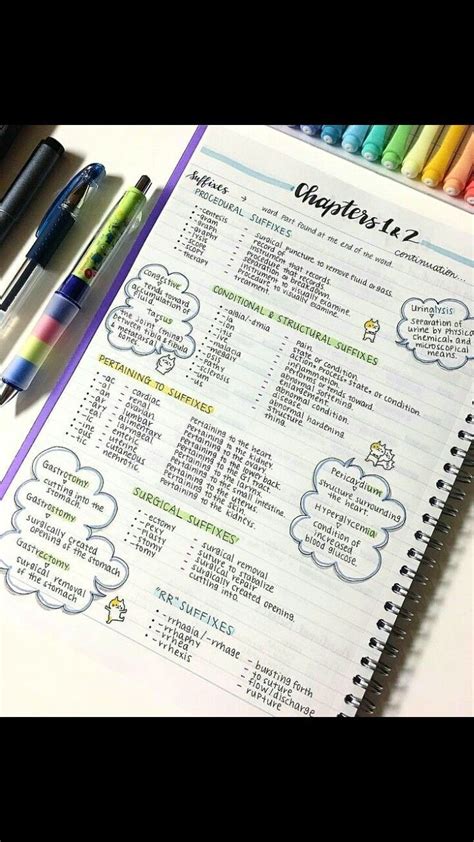 Chapters 1 & 2
continuation.
Suffixes → word part found at the end of the word.
PROCEDURAL SUFFIXES
-centesis - surgical puncture to remove fluid or gass.
-gram - record of.
-graph - instrument that records.
-graphy - procedure that records.
-lysis - separation or breakdown.
-scope - instrument to visually examine.
-scopy - procedure to visually examine.
-therapy - treatment.
Congestive
tends toward
accumulation of
fluid.
Tarsus
the joint (ming)
between tibia & fibula
& metatarsal
bones
Urinalysis
separation of
urine by physical
chemical and
microscopical
means.
CONDITIONAL & STRUCTURAL SUFFIXES
-algia/-dynia - pain
-ia - state or condition.
-itis - inflammation.
-ive - performs or tends toward.
-megaly - enlargement
-malacia - softening
-osis
-pathy
-sclerosis - abnormal hardening
-us - thing.
PERTAINING TO SUFFIXES
-ac - cardiac - Pertaining to the heart.
-al - renal - Pertaining to the kidney.
-an - ovarian - Pertaining to the ovary
-ar - lumbar
-ary - alimentary - Pertaining to the GI track.
-eal - laryngeal - Pertaining to the larynx.
-ic - uterine - Pertaining to the uterus.
-ous - cutaneous - Pertaining to the skin.
-tic - nephrotic - Pertaining to the kidneys.
Pericardium
structure surrounding
the heart.
Hyperglycemia
condition of
increased
blood glucose.
Gastrotomy
cutting into the
stomach.
Gastrostomy
surgically created
opening of the stomach
Gastrectomy
surgical removal
of the stomach
SURGICAL SUFFIXES
-ectomy - surgical removal
-pexy - suture to stabalize
-plasty - surgical repair
-stomy - surgically created opening.
-tomy - cutting into.
"RR" SUFFIXES
-rrhagia/-rrhage - bursting forth
-rrhaphy - to suture
-rrhea - flow/discharge
-rrhexis - rupture